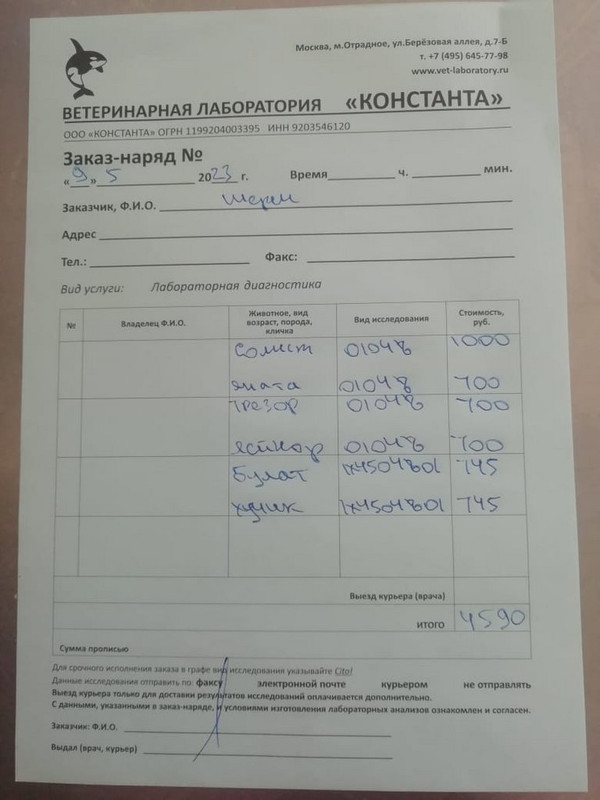 Москва, м.Отрадное, ул.Берёзовая аллея, д.7-Б
т. +7 (495) 645-77-98
www.vet-laboratory.ru
ВЕТЕРИНАРНАЯ ЛАБОРАТОРИЯ «КОНСТАНТА»
ООО «КОНСТАНТА» ОГРН 1199204003395 ИНН 9203546120
Заказ-наряд №
«9» 5 2023 г. Время ч. мин.
Заказчик, Ф.И.О.
Адрес
Тел.: Факс:
Вид услуги: Лабораторная диагностика
№ Владелец Ф.И.О. Животное, вид возраст, порода, кличка Вид исследования Стоимость, руб.
Солист 01048 1000
01048 700
Трезор 01048 700
01048 700
Булат 1х4504801 745
1х4504801 745
Выезд курьера (врача)
ИТОГО 4590
Сумма прописью
Для срочного исполнения заказа в графе вид исследования указывайте Cito!
Данные исследования отправить по: факсу электронной почте курьером не отправлять
Выезд курьера только для доставки результатов исследований оплачивается дополнительно.
С данными, указанными в заказ-наряде, и условиями изготовления лабораторных анализов ознакомлен и согласен.
Заказчик: Ф.И.О.
Выдал (врач, курьер)